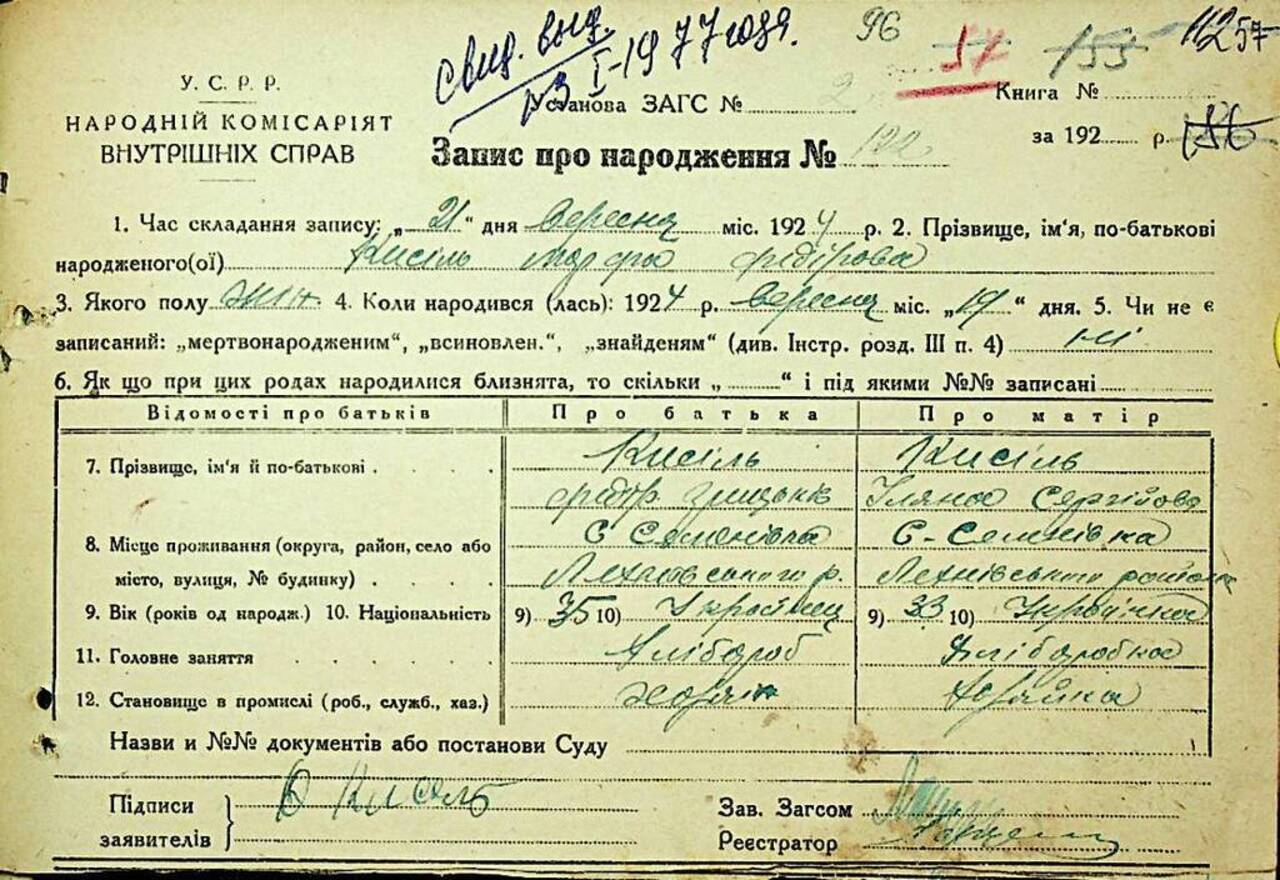 свид. выд. 96 57 155 11257
13 I-1977 года.
У. С. Р. Р.
НАРОДНІЙ КОМІСАРІЯТ
ВНУТРІШНІХ СПРАВ
Установа ЗАГС № Книга №
за 192 р. 156
Запис про народження № 122
1. Час складання запису: „21“ дня вересня міс. 1924 р. 2. Прізвище, ім'я, по-батькові
народженого(ої) Кисіль Марфа Федірова
3. Якого полу жін. 4. Коли народився (лась): 1924 р. вересня міс. „19“ дня. 5. Чи не є
записаний: „мертвонародженим“, „всиновлен.“, „знайденям“ (див. Інстр. розд. III п. 4) ні
6. Як що при цих родах народилися близнята, то скільки „ “ і під якими №№ записані
Відомості про батьків Про батька Про матір
7. Прізвище, ім'я й по-батькові Кисіль Кисіль
Федір Грицьків Уляна Сергійова
8. Місце проживання (округа, район, село або С Семенівка С-Семнівка
місто, вулиця, № будинку) р. району
9. Вік (років од народж.) 10. Національність 9) 35 10) Українец 9) 33 10) Украінка
11. Головне заняття Хлібороб Хліборобка
12. Становище в промислі (роб., служб., хаз.) хозяїн хозяйка
Назви и №№ документів або постанови Суду
Підписи Кисель
заявителів
Зав. Загсом
Реєстратор